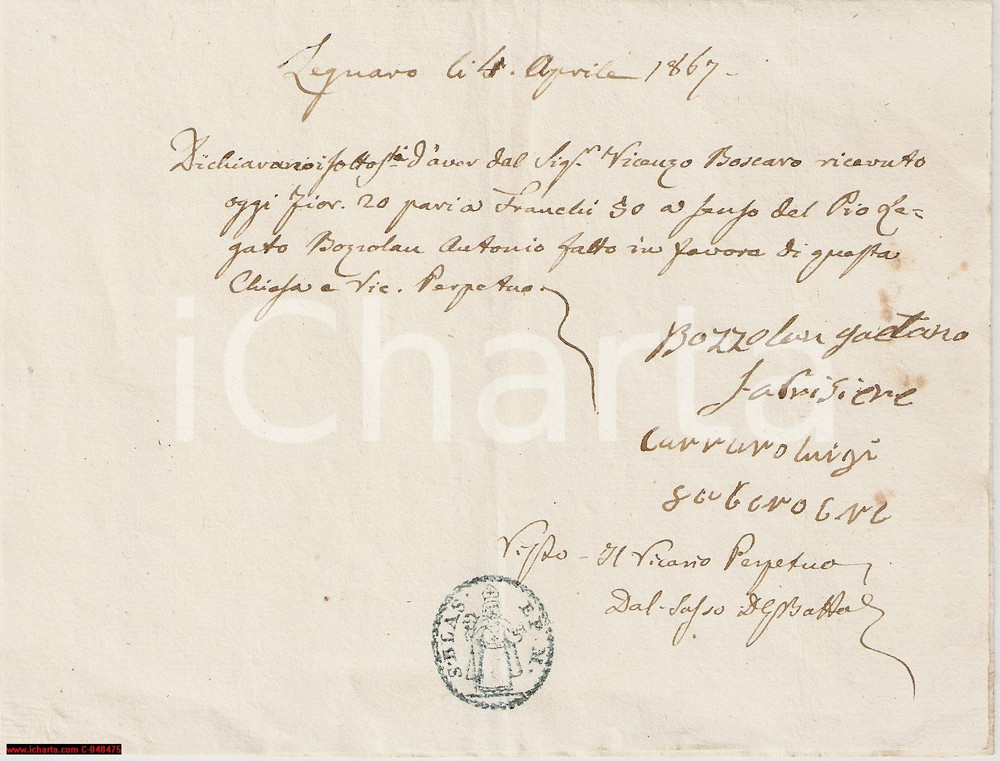 Legnaro li 4. Aprile 1867.
Dichiarano i sottos.ti d'aver dal Sig.r Vicenzo Boscaro ricevuto
oggi Fior. 20 pari a Franchi 50 a senso del Pio Le=
gato Bozzolan Antonio fatto in favore di questa
Chiesa e Vic. Perpetuo.
Bozzolan gaetano
fabrisiere
Carraro luigi
Visto - Il Vicario Perpetuo
Dal-Sasso DGBatta
S. BLAS. EP. M.
iCharta
www.icharta.com C-048475